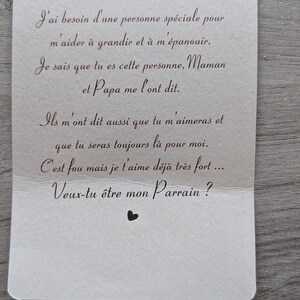 J'ai besoin d'une personne spéciale pour
m'aider à grandir et à m'épanouir.
Je sais que tu es cette personne, Maman
et Papa me l'ont dit.
Ils m'ont dit aussi que tu m'aimeras et
que tu seras toujours là pour moi.
C'est fou mais je t'aime déjà très fort ...
Veux-tu être mon Parrain ?